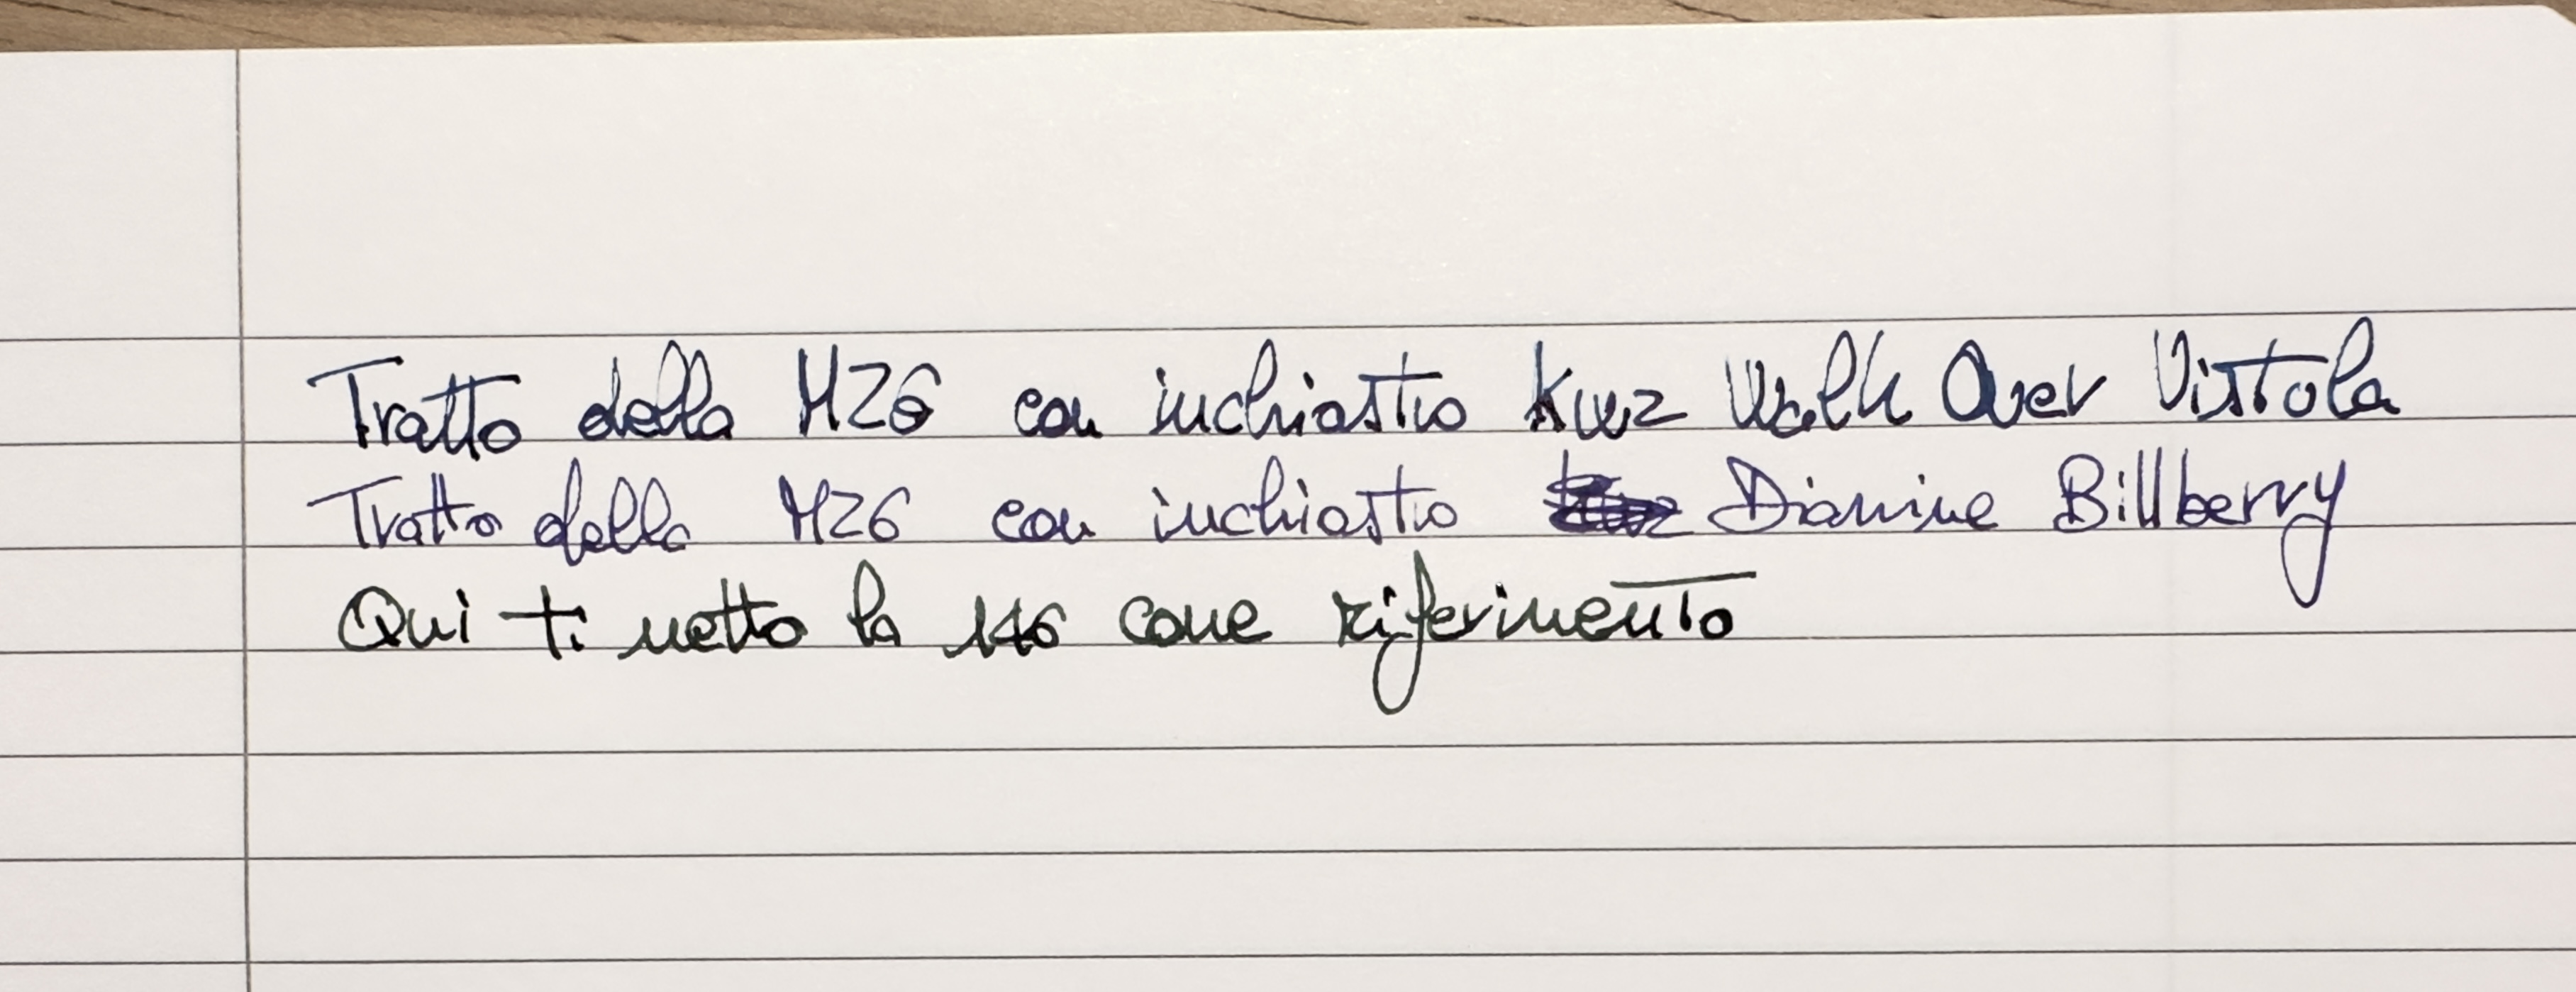 Tratto della MZ6 con inchiostro KWZ Walk Over Vistola
Tratto della MZ6 con inchiostro Diamine Billberry
Qui ti metto la 146 come riferimento